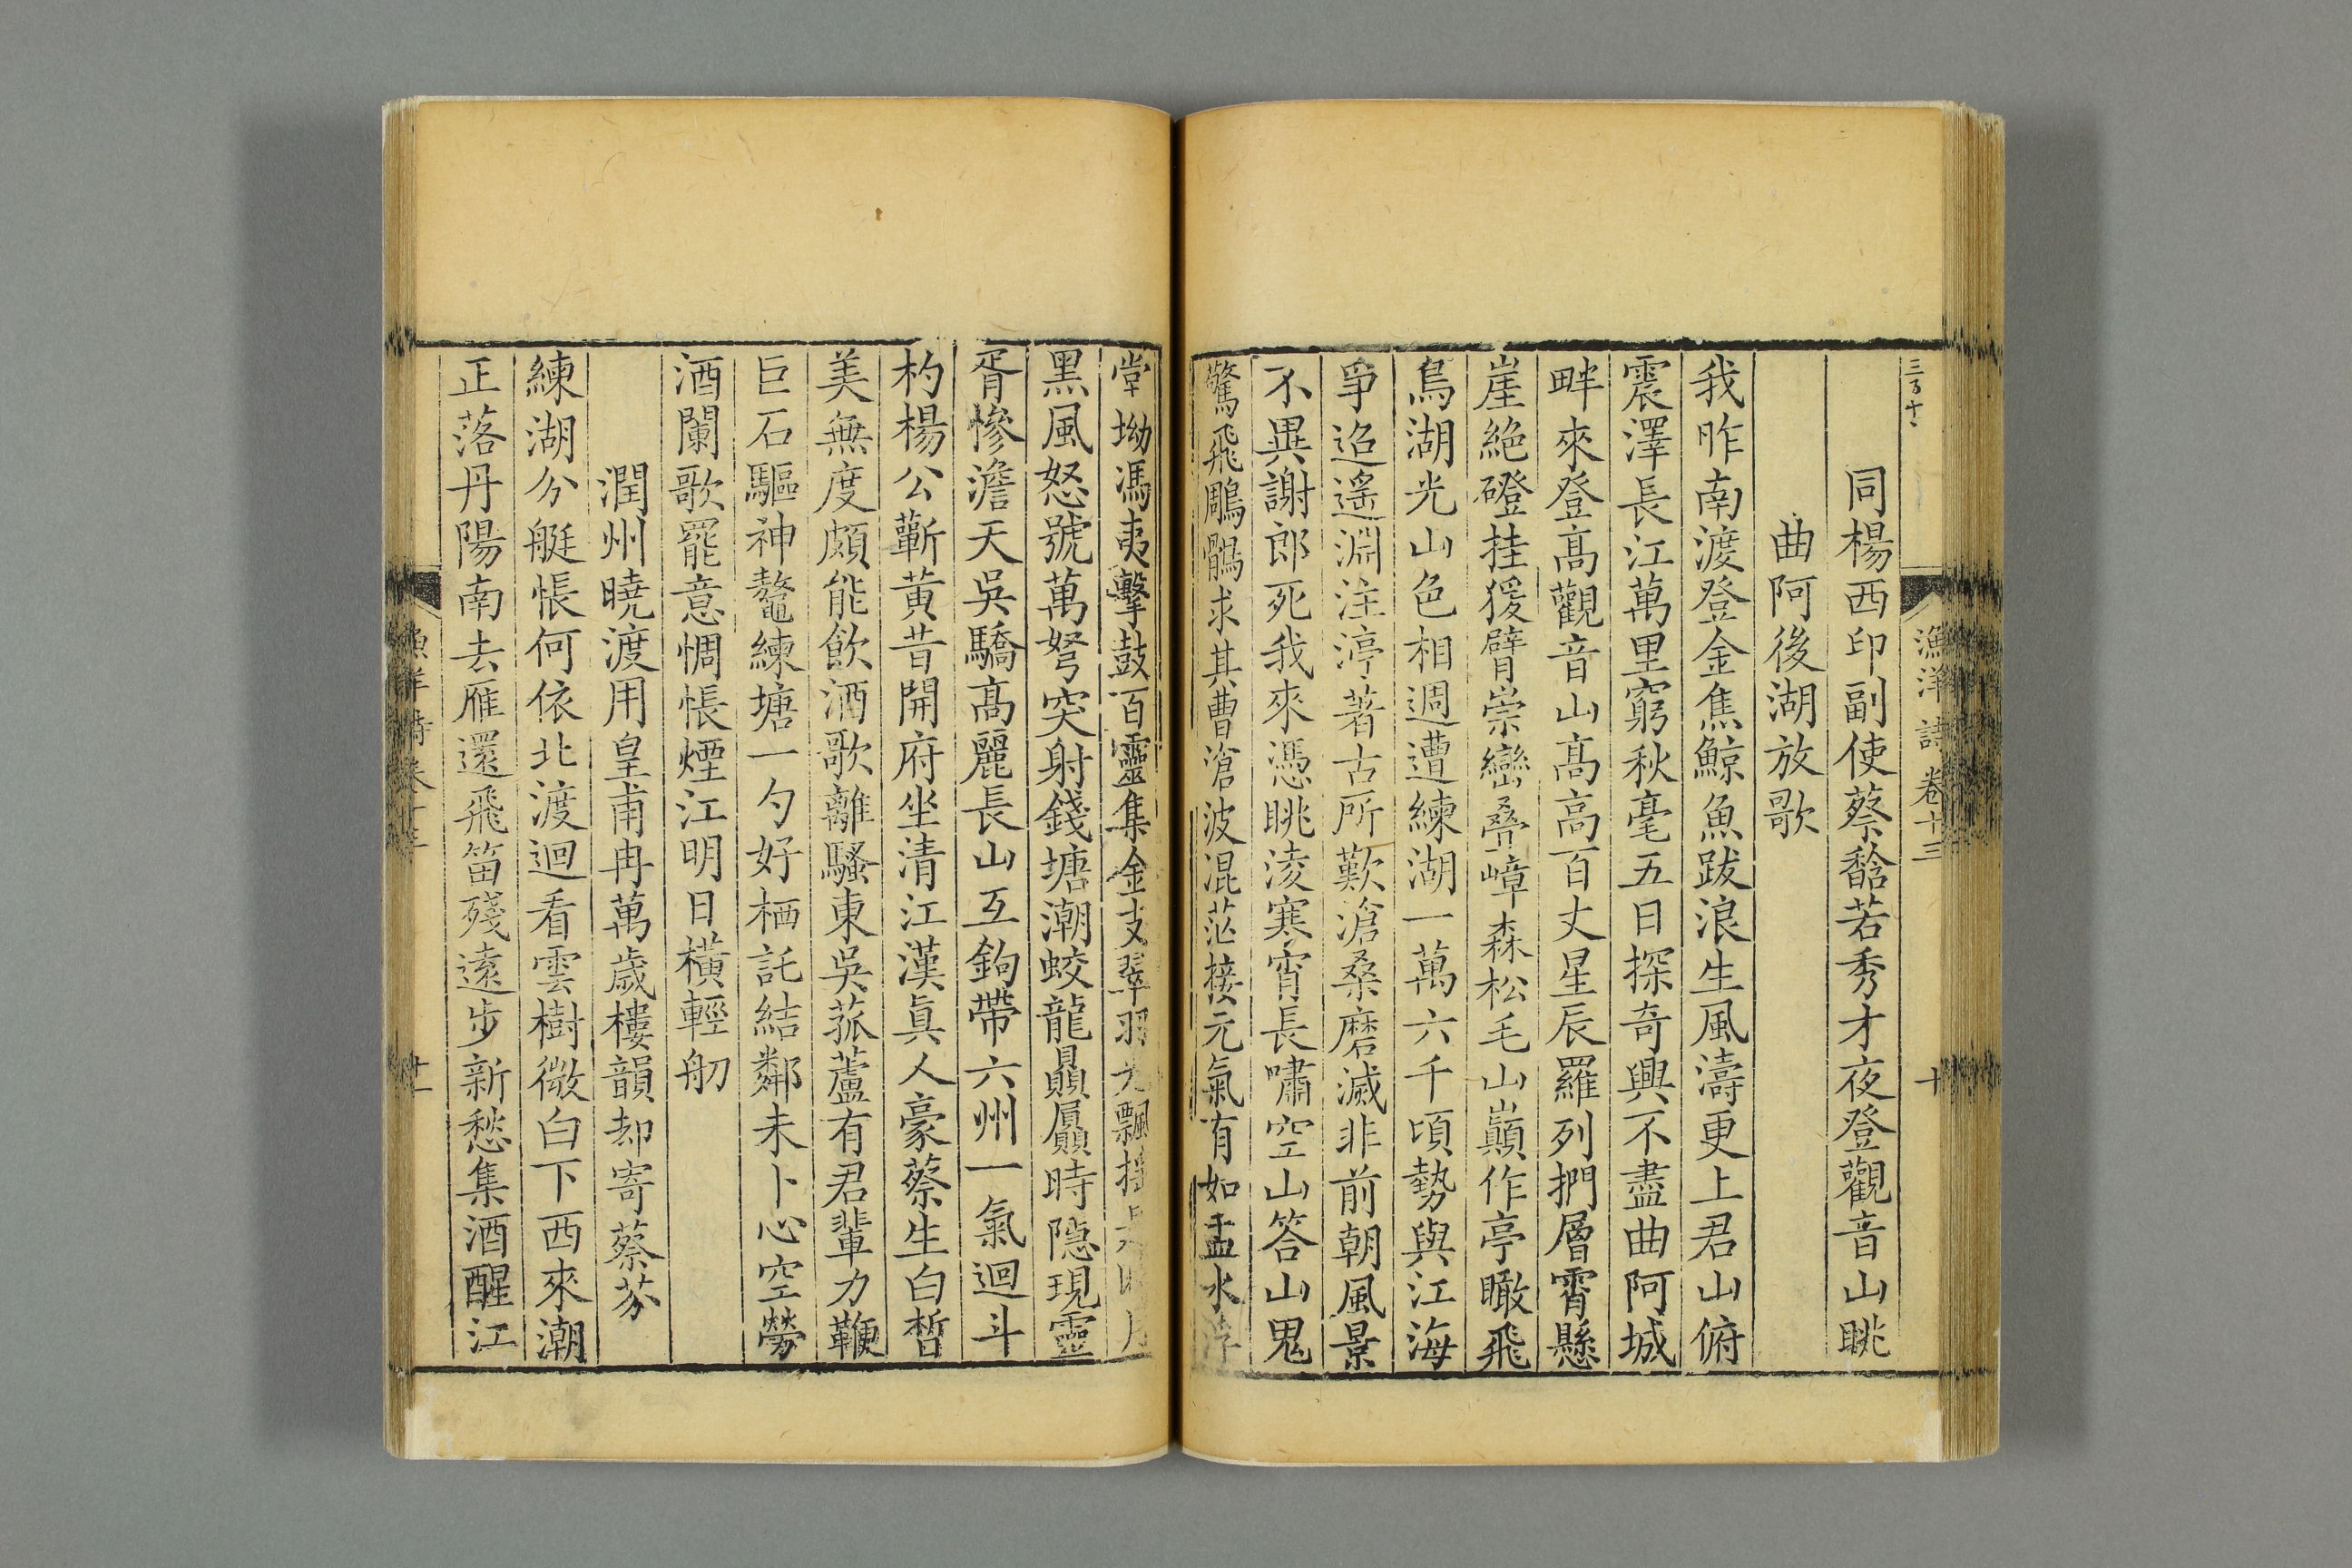 三百十
漁洋詩 卷十三
十
同楊西印副使蔡馠若秀才夜登觀音山眺
曲阿後湖放歌
我昨南渡登金焦鯨魚跋浪生風濤更上君山俯
震澤長江萬里窮秋毫五日探奇興不盡曲阿城
畔來登高觀音山高高百丈星辰羅列捫層霄懸
崖絶磴挂猨臂崇巒疊嶂森松毛山巔作亭瞰飛
鳥湖光山色相週遭練湖一萬六千頃勢與江海
爭迢遙淵注渟著古所歎滄桑磨滅非前朝風景
不異謝郎死我來憑眺淩寒宵長嘯空山答山鬼
驚飛鵰鶻求其曹滄波混茫接元氣有如盂水浮
堂坳馮夷擊鼓百靈集金支翠羽光飄
黑風怒號萬弩突射錢塘潮蛟龍贔屭時隱現靈
胥慘澹天吳驕高麗長山互鉤帶六州一氣迴斗
杓楊公蘄黃昔開府坐清江漢眞人豪蔡生白皙
美無度頗能飲酒歌離騷東吳菰蘆有君輩力鞭
巨石驅神鼇練塘一勺好栖託結鄰未卜心空勞
酒闌歌罷意惆悵煙江明日橫輕舠
潤州曉渡用皇甫冉萬歲樓韻却寄蔡芬
練湖分艇悵何依北渡迴看雲樹微白下西來潮
正落丹陽南去雁還飛笛殘遠步新愁集酒醒江
漁洋詩卷十三
十一